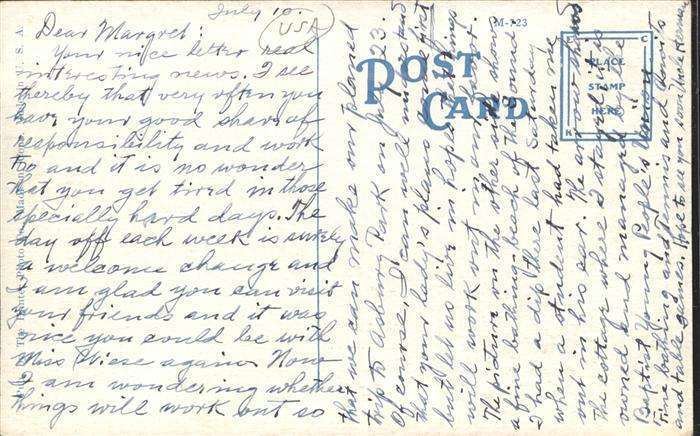 July 10.
USA
Dear Margret:
Your nice letter real
interesting news. I see
thereby that very often you
have your good share of
responsibility and work
too and it is no wonder
that you get tired in those
specially hard days. The
day off each week is surely
a welcome change and
I am glad you can visit
your friends and it was
nice you could be with
Miss Wiese again. Now
I am wondering whether
things will work out so
that we can make our planed
trip to Asbury Park on July 23.
Of course, I can well understand
that your lady's plans come first
but let us live in hopes things
will work out in our favor.
The picture on the other side shows
a fine bathing-beach of the Sound
I had a dip there last Saturday
when a student had taken me
out in his car. The
the cottage where I stayed it is
owned and managed by the
Baptist Young People's Union
Fine bathing and tennis and
and table games. Hope to see you soon.
M-723
POST
CARD
PLACE
STAMP
HERE